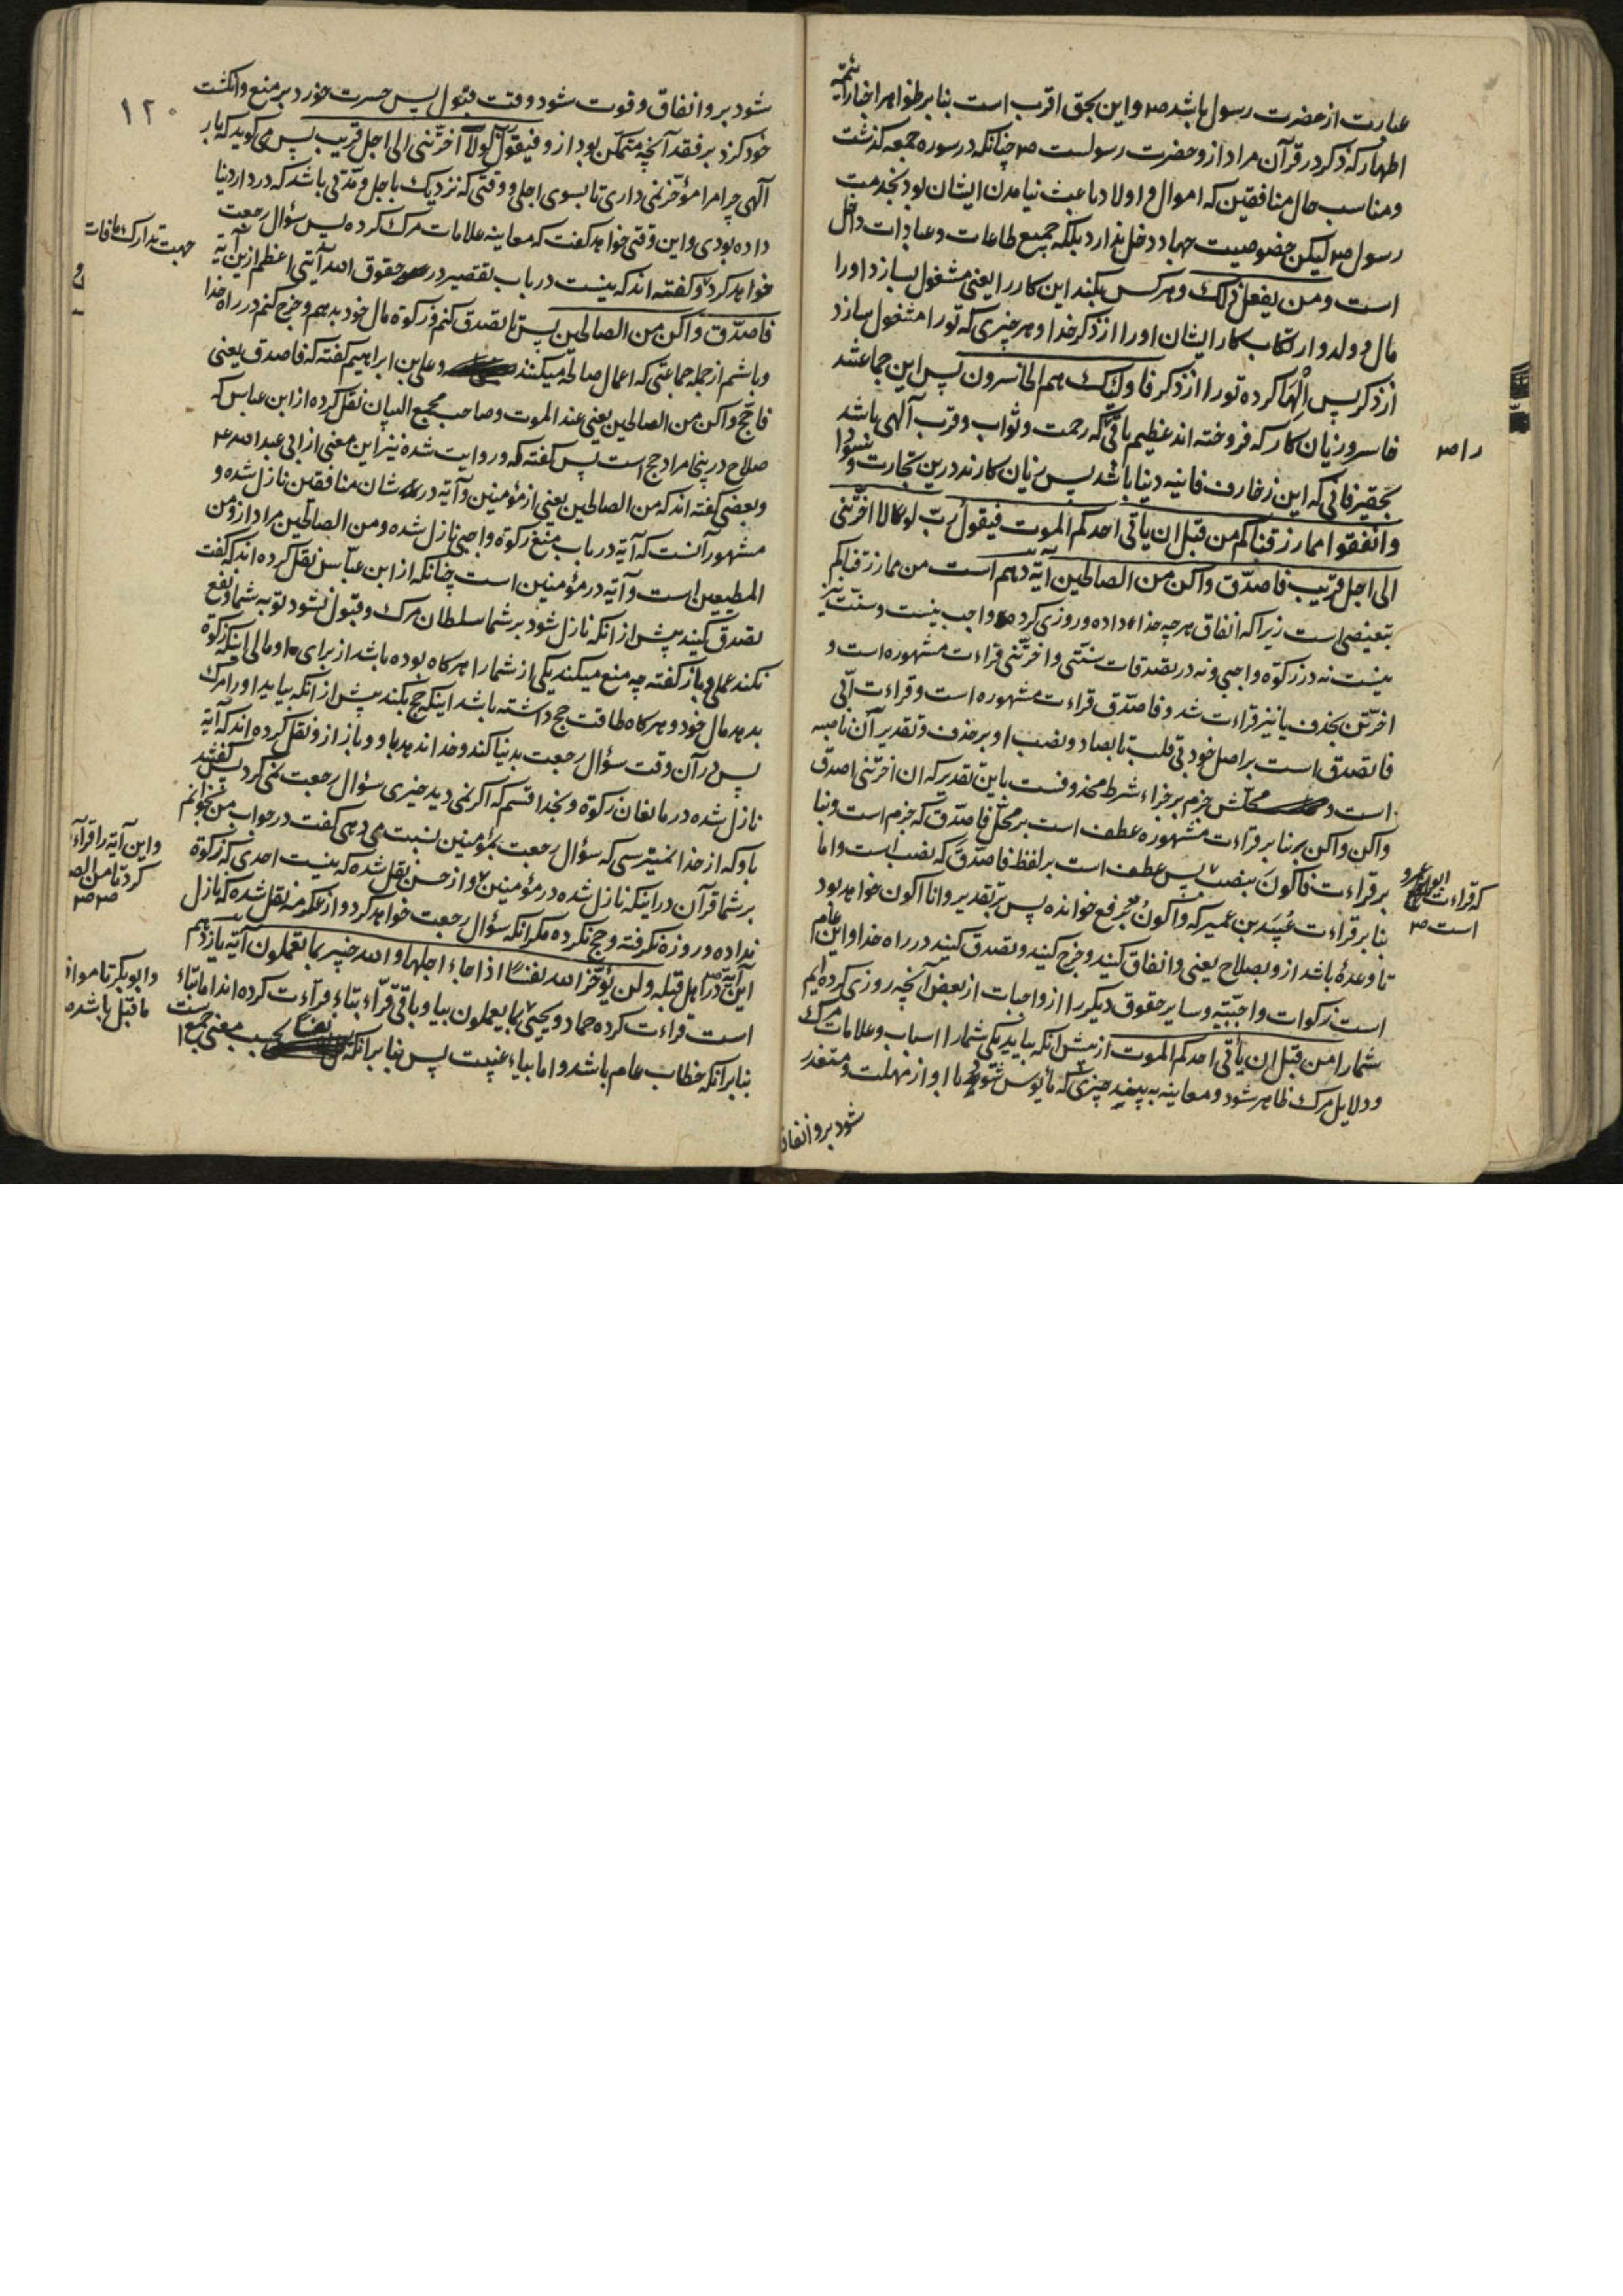 عبارت از حضرت رسول باشد ص و این بحق اقرب است بنا بر ظواهر اخبار ائمه
اطهار که ذکر در قرآن مراد از و حضرت رسولست ص چنانکه در سوره جمعه کذشت
و مناسب حال منافقین که اموال و اولاد باعث نیامدن ایشان بود بخدمت
رسول ص لیکن خصوصیت جهاد دخل ندارد بلکه جمیع طاعات و عبادات داخل
است و من یفعل ذلک و هر کس بکند این کار را یعنی مشغول بسازد او را
مال و ولد و ارتکاب کار ایشان او را از ذکر خدا و هر چیزی که تو را مشغول سازد
از ذکر پس الها کرده تو را از ذکر فاولئک هم الخاسرون پس این جماعتند
خاسر و زیان کار که فروخته اند عظیم باقی که رحمت و ثواب و قرب آلهی باشد
را ص
بحقیر فانی که این زخارف فانیه دنیا باشد پس زیان کارند درین تجارت و
وانفقوا مما رزقناکم من قبل ان یاتی احدکم الموت فیقول رب لولا اخرتنی
الی اجل قریب فاصدق واکن من الصالحین آیه دهم است من مما رزقناکم
تبعیضی است زیرا که انفاق هر چه خدا داده و روزی کرده واجب نیست و سنت نیز
نیست نه در زکوة واجبی و نه در تصدقات سنتی و اخرتنی قراءت مشهوره است و
اخرتن بحذف یا نیز قراءت شد و فاصدق قراءت مشهوره است و قراءت ابی
فاتصدق است بر اصل خود بی قلب تا بصاد و نصب او بر حذف و تقدیر آن ناصبه
است و محلش جزم بر جزاء شرط محذوفست باین تقدیر که ان اخرتنی اصدق
واکن و اکن بنا بر قراءت مشهوره عطف است بر محل فاصدق که جزم است و بنا
بر قراءت فاکون بنصب پس عطف است بر لفظ فاصدق که نصب است و اما
که قراءت ابو عمرو
است ص
بنا بر قراءت عبید بن عمیر که واکون برفع خوانده پس بر تقدیر وانا اکون خواهد بود
تا وعدهٔ باشد از و بصلاح یعنی و انفاق کنید و خرج کنید و تصدق کنید در راه خدا و این عام
است زکوات واجبیه و سایر حقوق دیکر را از واجبات از بعض آنچه روزی کرده ایم
شما را من قبل ان یأتی احدکم الموت از پیش آنکه بیاید یکی شما را اسباب و علامات مرک
و دلایل مرک ظاهر شود و معاینه به بیند چیزی که مأیوس شود با او از مهلت و متعذر
شود برو انفاق
۱۲۰
شود برو انفاق و فوت شود وقت قبول پس حسرت خورد بر منع و انکشت
خود کزد بر فقد آنچه متمکن بود از و فیقول رب لولا اخرتنی الی اجل قریب پس می کوید که یا رب
آلهی چرا مرا مؤخر نمی داری تا بسوی اجلی و وقتی که نزدیک باجل و مدتی باشد که در دار دنیا
داده بودی و این وقتی خواهد کفت که معاینه علامات مرک کرده پس سؤال رجعت
جهت تدارک مافات
خواهد کرد و کفته اند که نیست در باب تقصیر در حقوق الله آیتی اعظم ازین آیه
فاصدق واکن من الصالحین پس تا تصدق کنم و زکوة مال خود بدهم و خرج کنم در راه خدا
و باشم از جمله جماعتی که اعمال صالحه میکنند و علی بن ابراهیم کفته که فاصدق یعنی
فاحج واکن من الصالحین یعنی عند الموت و صاحب مجمع البیان نقل کرده از ابن عباس که
صلاح درینجا مراد حج است پس کفته که و روایت شده نیز این معنی از ابی عبدالله ع
و بعضی کفته اند که من الصالحین یعنی از مؤمنین و آیه در شان منافقین نازل شده و
مشهور آنست که آیه در باب منع زکوة واجبی نازل شده و من الصالحین مراد از و من
المطیعین است و آیه در مؤمنین است چنانکه از ابن عباس نقل کرده اند که کفت
تصدق کنید پیش از انکه نازل شود بر شما سلطان مرک و قبول نشود توبه شما و نفع
نکند عملی و باز کفته چه منع میکند یکی از شما را هر کاه بوده باشد از برای او مالی اینکه زکوة
بدهد مال خود و هر کاه طاقت حج داشته باشد اینکه حج بکند پیش از انکه بیاید او را مرک
پس در آن وقت سؤال رجعت بدنیا کند و خدا ندهد باو و باز از و نقل کرده اند که آیه
نازل شده در مانعان زکوة و بخدا قسم که اکر نمی دید خیری سؤال رجعت نمی کرد پس کفتند
باو که از خدا نمیترسی که سؤال رجعت بمؤمنین نسبت می دهی کفت در جواب من میخوانم
بر شما قرآن در اینکه نازل شده در مؤمنین و از حسن نقل شده که نیست احدی که زکوة
و این آیه را قراءت
کرد تا من الصالحین
ص ص
نداده و روزه نکرفته و حج نکرده مکر انکه سؤال رجعت خواهد کرد و از عکرمه نقل شده که نازل
این آیه در اهل قبله ولن یؤخر الله نفسا اذا جاء اجلها والله خبیر بما تعملون آیه یازدهم
است قراءت کرده حماد و یحیی بما یعملون بیا و باقی قراء بتاء قراءت کرده اند اما بتاء
و ابوبکر
ما قبل باشد
بنا بر انکه خطاب عام باشد و اما بیاء غیبت پس بنا بر انکه نفسا بحسب معنی جمع است